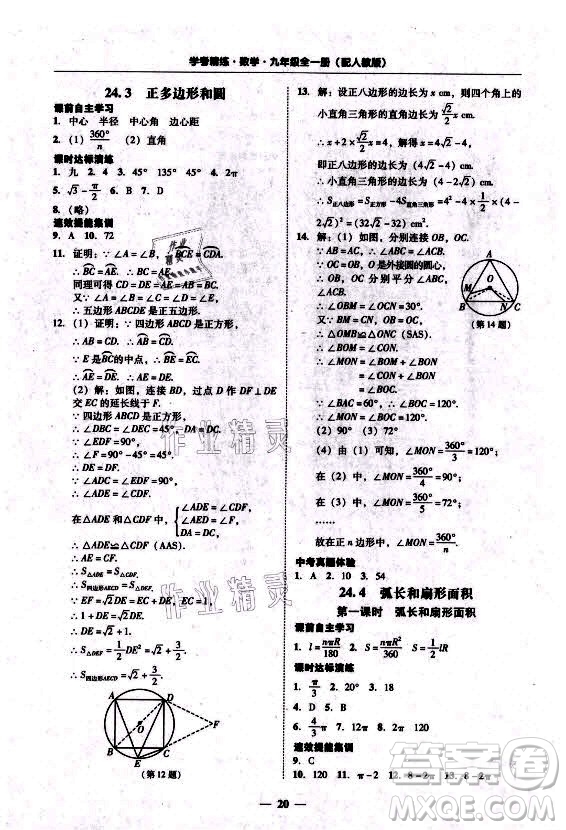 学考精练·数学·九年级全一册(配人教版)
24.3 正多边形和圆
课前自主学习
1. 中心 半径 中心角 边心距
2. (1) 360°/n (2) 直角
课时达标演练
1. 九 2. 4 3. 45° 135° 45° 4. 2π
5. √3-π/2 6. B 7. D
8. (略)
速效提能集训
9. A 10. 72
11. 证明:∵∠A=∠B,BCE=CDA.
∴BC=AE. ∴BC=AE.
同理可得 CD=EA.
又∵
∴五边形 ABCDE 是正五边形.
12. (1) 证明:∵四边形 ABCD 是正方形,
∴AB=CD. ∴AB=CD.
∵E 是BC的中点,∴BE=EC.
∴AE=DE. ∴AE=DE.
(2) 解:如图,连接 BD,过点 D 作 DF⊥DE
交 EC 的延长线于 F.
∵四边形 ABCD 是正方形,
∴∠DBC=∠DEC=45°,
∴∠EDF=90°,
∴∠F=90°-45°=45°.
∴DE=DF.
∵∠AED=∠F=45°,
在△ADE 和△CDF 中,
∠ADE=∠CDF,
∠AED=∠F,
DA=DC,
∴△ADE≌△CDF(AAS).
∴AE=CF.
∴S△ADE=S△CDF.
∴S四边形AECD=S△DEF.
∵EF=√2DE=EC+CF=√2+1,
∴√2DE=√2+1.
∴S△DEF=1/2DE²=√2/2+3/4.
∴S四边形AECD=√2/2+3/4.
A D O F B C E
(第 12 题)
13. 解:设正八边形的边长为 x cm,则四个角上的
小直角三角形的边长为√2/2 x cm.
∴x+2×√2/2 x=4. ∴x=4√2-4,
即正八边形的边长为(4√2-4) cm.
小直角三角形的边长为(4-2√2) cm.
∴S正八边形=S正方形-4S直角三角形=4²-4×1/2×(4-
2√2)²=32√2-32(cm²).
14. 解:(1) 如图,分别连接 OB,OC.
∵AB=AC,∴∠ABC=∠ACB.
∵OC=OB,O 是外接圆的圆心,
∴CO 平分∠ACB,BO 平分∠ABC,
∠ACB.
∴∠OBC=∠OCB=30°.
又∵BM=CN,OB=OC,
∴△OMB≌△ONC(SAS).
∴∠BOM=∠NOC.
∴∠MON=∠BOM+∠BON
=∠BON+∠NOC=∠BOC.
∵∠BAC=60°,
∴∠BOC=120°. ∴∠MON=120°.
A O M B N C
(第 14 题)
(2) 90° (3) 72°
(4) 由(1)可知,∠MON=360°/3=120°.
在(2)中,∠MON=360°/4=90°.
在(3)中,∠MON=360°/5=72°.
……
故在正 n 边形中,∠MON=360°/n.
中考真题体验
1. A 2. 10 3. 54
24.4 弧长和扇形面积
第一课时 弧长和扇形面积
课前自主学习
1. l=nπR/180 2. S=nπR²/360 S=1/2lR
课时达标演练
1. π/3 2. (20+2π) 3. 18
4. D 5. B
6. 4/3π 7. 12π 8. 2π 120
速效提能集训
9. C
10. 120 11. π-2 12. 8-2π
20
作业精灵
作业精灵
作业帮
MXQE.COM